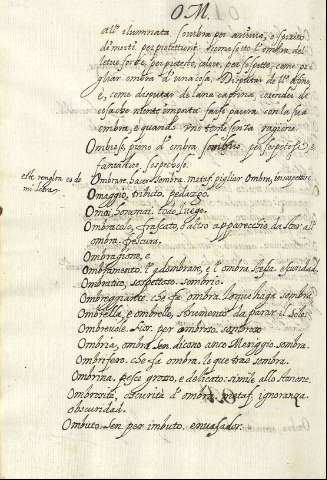 O M.
all' iluminata, sombra per anima, o spirito
di morti. per protettione. Hoime sotto l'ombra del
per pretesto, colore, per sospetto, come pi
gliar ombra d'una cosa. Disputar de ll' Asino,
e, come disputar de lana caprina, contender de
cosa che niente importa farsi paura con la sua
ombra, e quando mi teme senza ragione.
Ombroso, pieno d'ombra sombrio, per sospetoso e
fantastico, sospechoso.
Ombrare, hacer sombra. metaf. pigliar ombra, insospettire
Omaggio, tributo,
Omai, hormai. todo luego.
Ombracolo, frascato, o altro apparecchio da star all'
ombra. frescura,
Ombragione, e
Ombramento. l'adombrare, e l'ombra stessa. escuridad.
Ombratico, sospettoso. sombrio.
Ombreggiante. che fa ombra. lo que haga sombra
Ombrella, e ombrello, strumento da parar il Sole.
Ombrevole. Sior. per ombroso. sombroso
Ombria, ombra. sen. dicono anco Meriggio. sombra.
Ombrifero. che fa ombra. lo que trae sombra.
Ombrina, pesce grosso, e delicato simile allo storione.
Ombrosità, escurità d'ombra, metaf. ignoranza.
obscuridad.
Ombuto. sen. per imbuto. envasador.